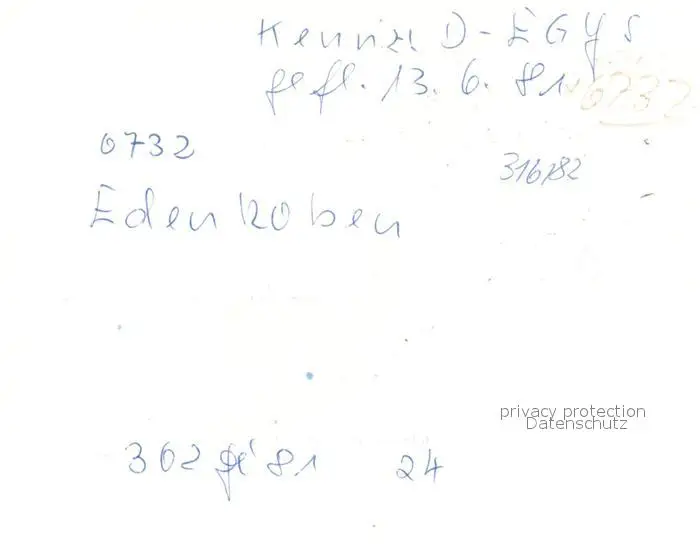 Kennz. D-EGYS
gefl. 13. 6. 81 0732
0732
316/82
Edenkoben
privacy protection
Datenschutz
302 81 24